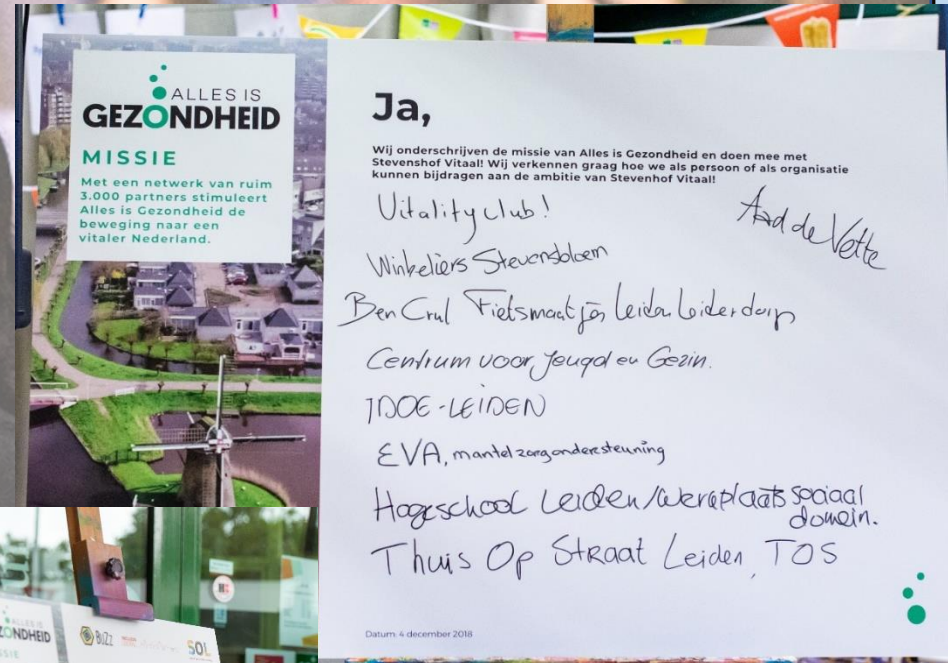 ALLES IS
GEZONDHEID
MISSIE
Met een netwerk van ruim
3.000 partners stimuleert
Alles is Gezondheid de
beweging naar een
vitaler Nederland.
Ja,
Wij onderschrijven de missie van Alles is Gezondheid en doen mee met
Stevenshof Vitaal! Wij verkennen graag hoe we als persoon of als organisatie
kunnen bijdragen aan de ambitie van Stevenhof Vitaal!
Vitalityclub!
Aad de Vette
Winkeliers Stevensbloem
Ben Crul Fietsmaatjes Leiden Leiderdorp
Centrum voor Jeugd en Gezin.
IDOE-LEIDEN
EVA, mantelzorgondersteuning
Hogeschool Leiden/werkplaats sociaal
domein.
Thuis Op Straat Leiden, TOS
Datum: 4 december 2018
ALLES IS
ZONDHEID
SSIE
BuZz
SOL